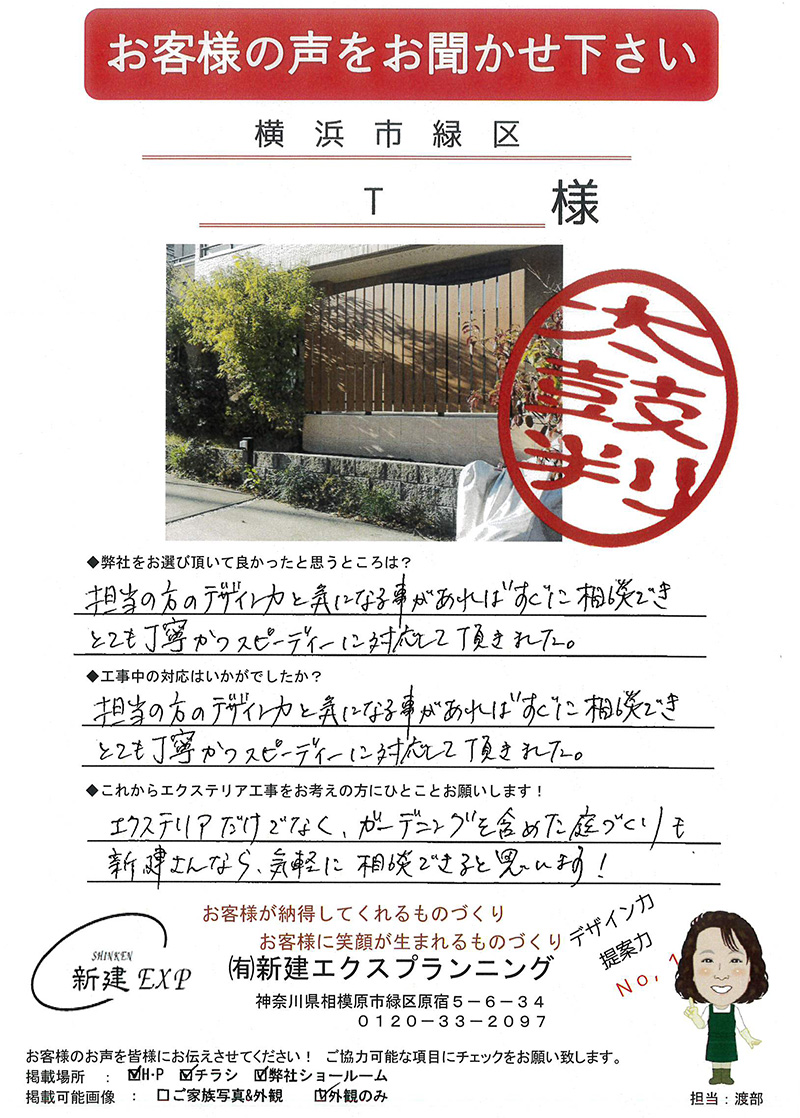 お客様の声をお聞かせ下さい
横浜市緑区
T 様
太鼓判
◆弊社をお選び頂いて良かったと思うところは？
担当の方のデザイン力と気になる事があればすぐに相談でき
とても丁寧かつスピーディーに対応して頂きました。
◆工事中の対応はいかがでしたか？
担当の方のデザイン力と気になる事があればすぐに相談でき
とても丁寧かつスピーディーに対応して頂きました。
◆これからエクステリア工事をお考えの方にひとことお願いします！
エクステリアだけでなく、ガーデニングを含めた庭づくりも
新建さんなら、気軽に相談できると思います！
お客様が納得してくれるものづくり
お客様に笑顔が生まれるものづくり
デザイン力
提案力
No,1
SHINKEN
新建EXP
㈲新建エクスプランニング
神奈川県相模原市緑区原宿５－６－３４
０１２０－３３－２０９７
お客様のお声を皆様にお伝えさせてください！ ご協力可能な項目にチェックをお願い致します。
掲載場所 ： ☑H・P ☑チラシ ☑弊社ショールーム
掲載可能画像 ： □ご家族写真&外観 ☑外観のみ
担当：渡部